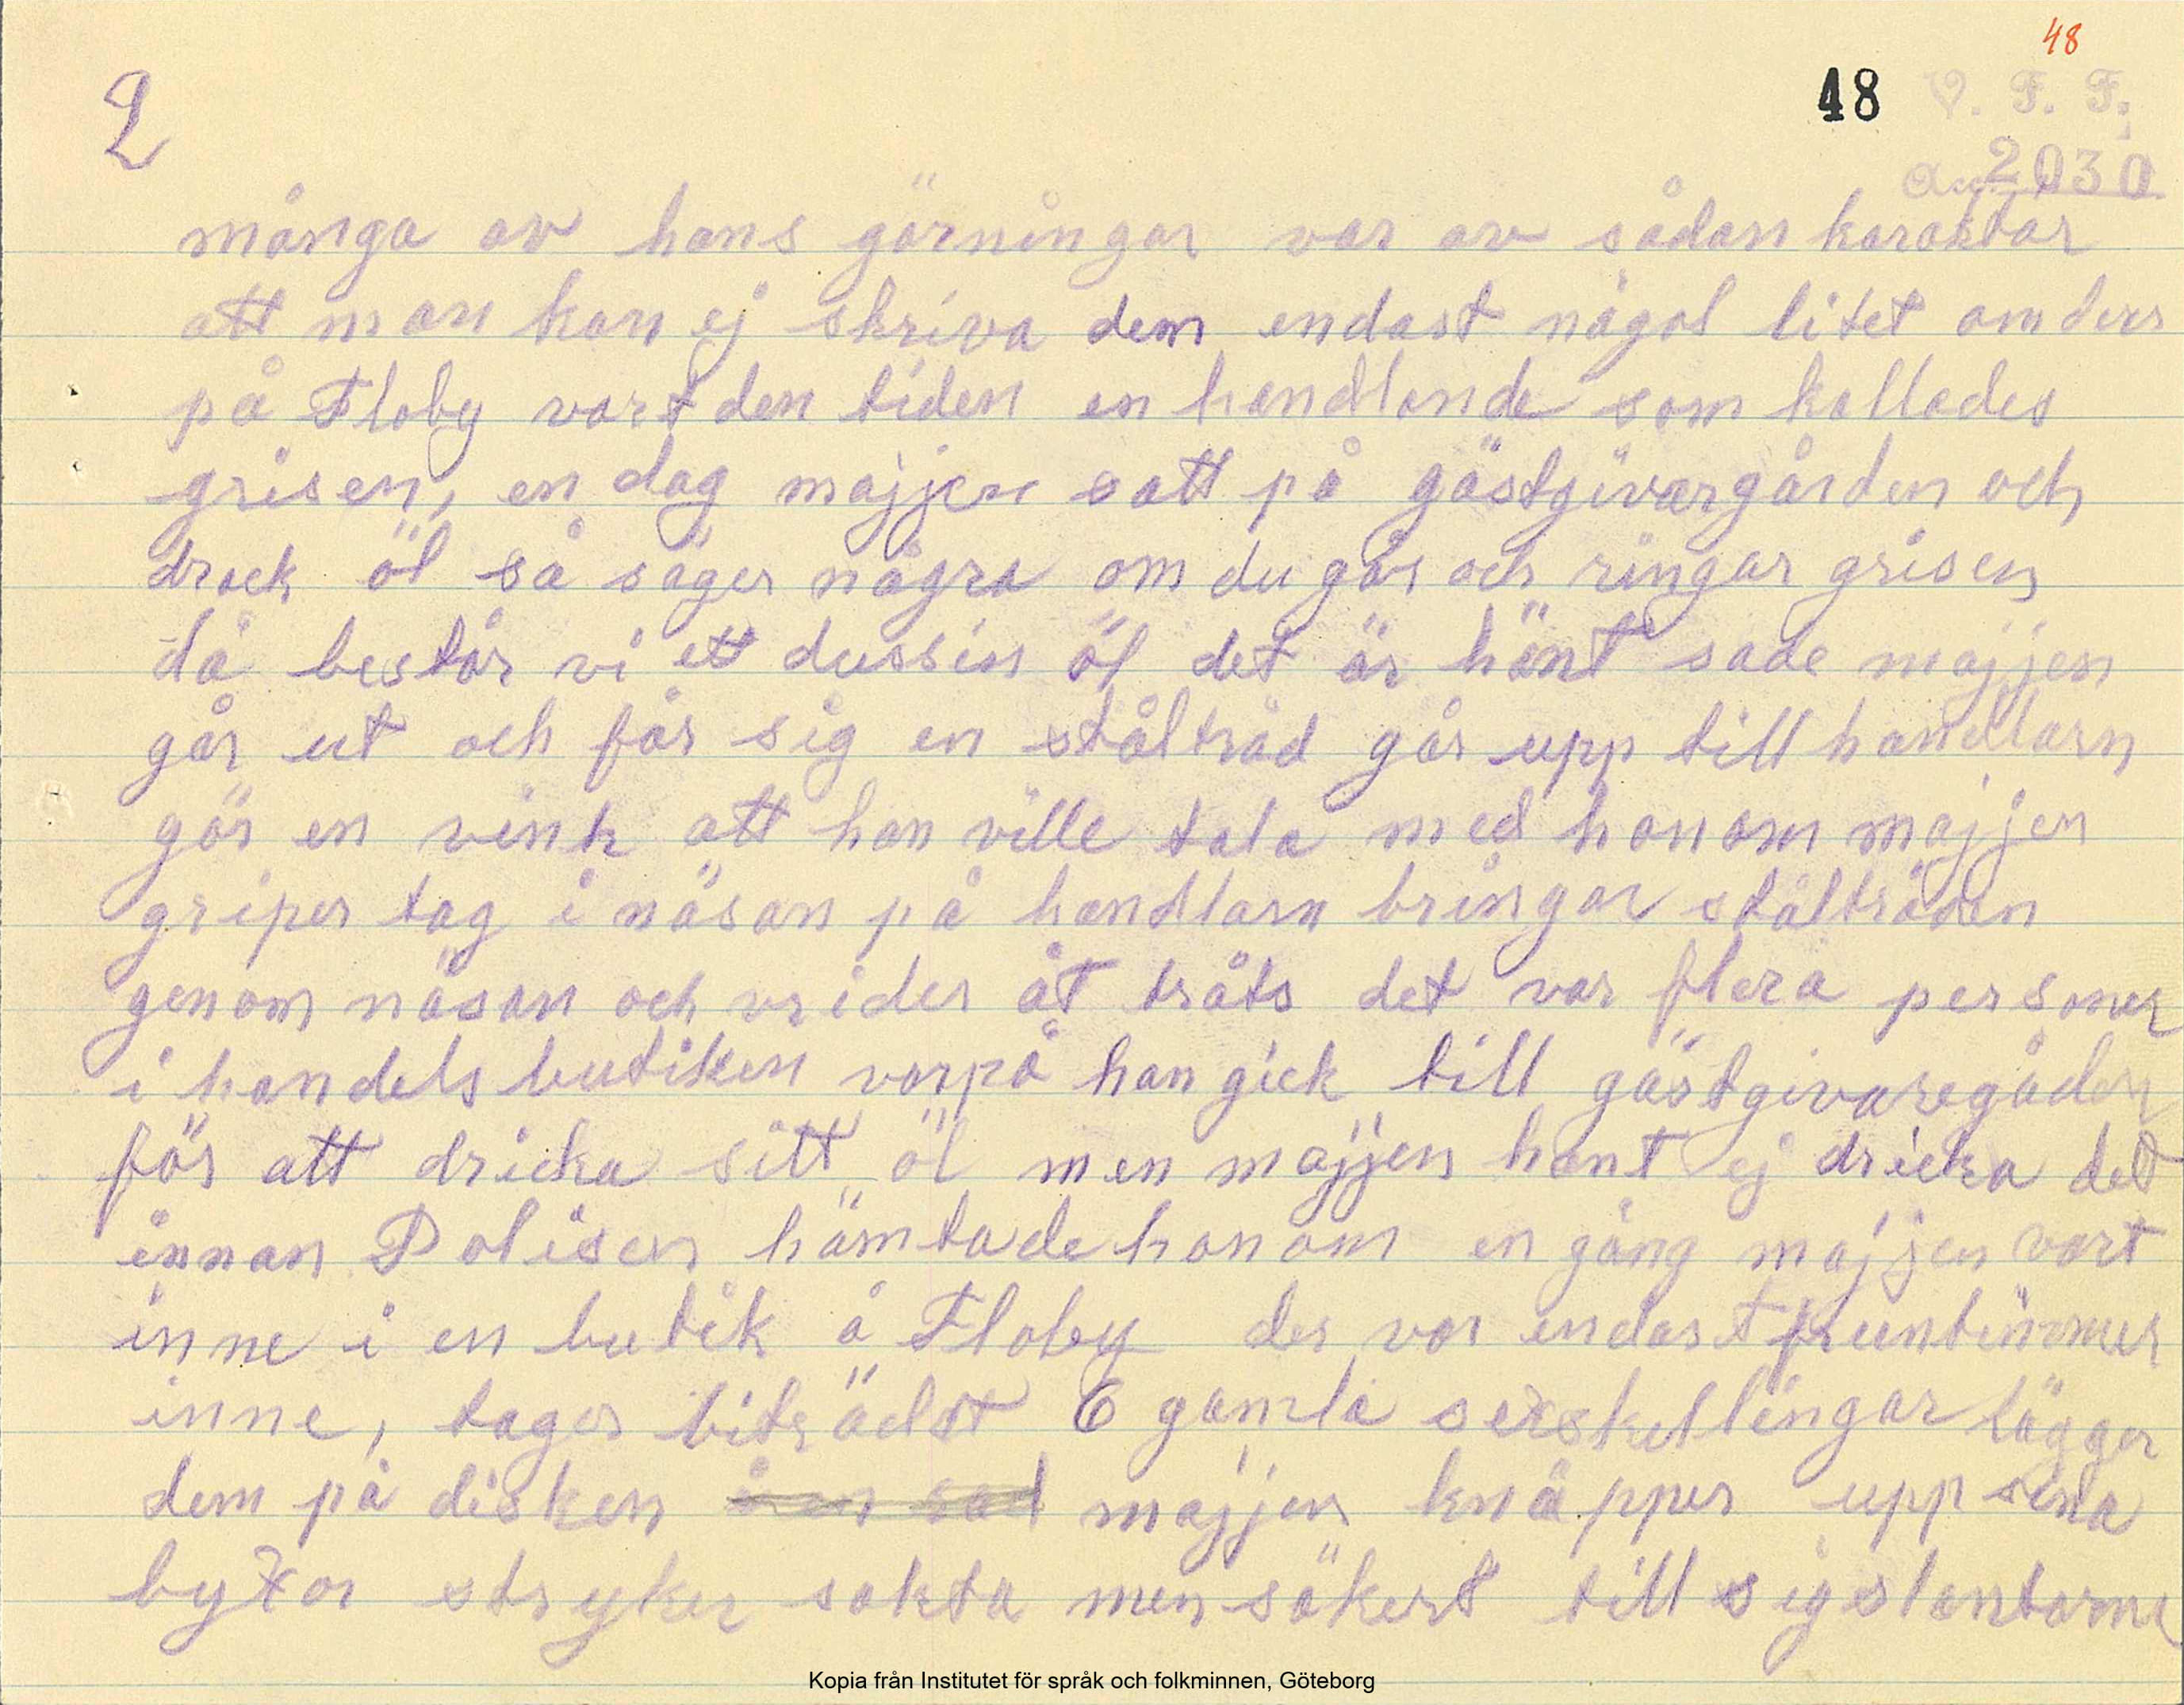 48
48 V. F. F.
2
2030
många av hans görningar var av sådan karaktär
att man kan ej skriva dem endast något litet om ders
på Floby vart den tiden en handlande som kallades
grisen, en dag majjen satt på gästgivargården och
drack öl så säger några om du går och ringar grisen
då består vi ett dussin öl det är hänt sade majjen
går ut och får sig en ståltråd går upp till handlarn
gör en vink att han ville tala med honom majjen
griper tag i näsan på handlarn bringar ståltråden
genom näsan och vrider åt tråts det var flera personer
i handelsbutiken varpå han gick till gästgivaregåden
för att dricka sitt öl men majjen hant ej dricka det
innan Polisen hämtade honom en gång majjen vart
inne i en butik å Floby der var endast fruntimmer
inne, tager biträdet 6 gamla sexskellingar lägger
dem på disken majjen knäpper upp sina
byxor stryker sakta men säkert till sig slantarna
Kopia från Institutet för språk och folkminnen, Göteborg